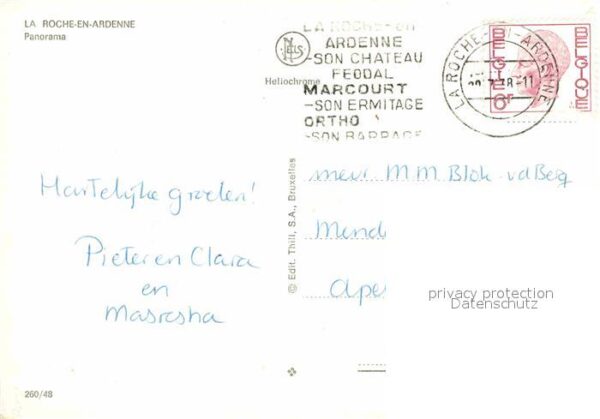 LA ROCHE-EN-ARDENNE
Panorama
NELS
Heliochrome
LA ROCHE-en
ARDENNE
-SON CHATEAU
FEODAL
MARCOURT
-SON ERMITAGE
ORTHO
-SON BARRAGE
LA ROCHE-EN-ARDENNE
BELGIE
BELGIQUE
Hartelijke groeten!
Pieter en Clara
en
mevr M M Blok-vdBerg
Mend
Ape
© Edit. Thill, S.A., Bruxelles
privacy protection
Datenschutz
260/48